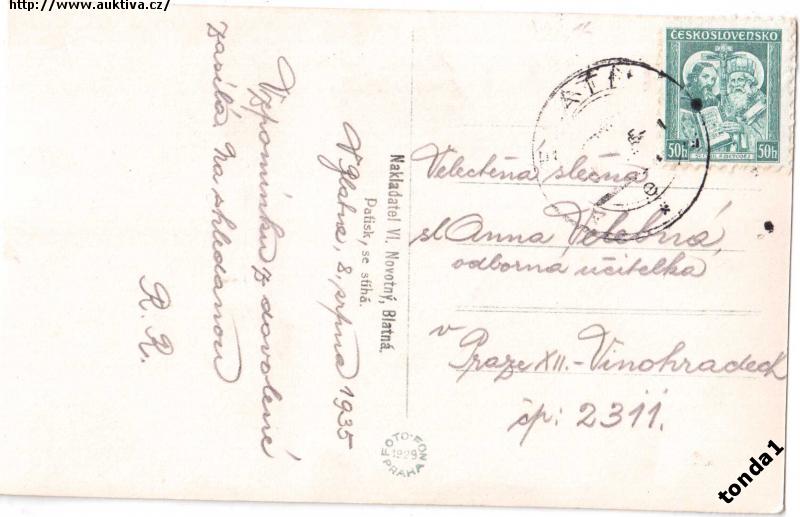 http://www.auktiva.cz/
ČESKOSLOVENSKO
50h 50h
Velectěná slečna
sl. Anna Velebná,
odborná učitelka
v
Praze XII.-Vinohradech
čp: 2311.
Nakladatel Vl. Novotný, Blatná.
Patisk se stíhá.
V Blatné, 8. srpna 1935
Vzpomínku z dovolené
zasílá. Na shledanou
R. R.
FOTO-FON
1929
PRAHA
tonda1